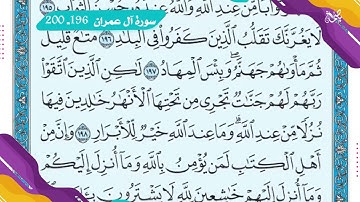 سورة آل عمران 196ـ 200
وَأَبًا مِّنْ عِندِ اللَّهِ وَاللَّهُ عِندَهُ حُسْنُ الثَّوَابِ ١٩٥
لَا يَغُرَّنَّكَ تَقَلُّبُ الَّذِينَ كَفَرُوا فِي الْبِلَٰدِ ١٩٦ مَتَٰعٌ قَلِيلٌ
ثُمَّ مَأْوَىٰهُمْ جَهَنَّمُ وَبِئْسَ الْمِهَادُ ١٩٧ لَٰكِنِ الَّذِينَ اتَّقَوْا
رَبَّهُمْ لَهُمْ جَنَّٰتٌ تَجْرِي مِن تَحْتِهَا الْأَنْهَٰرُ خَٰلِدِينَ فِيهَا
نُزُلًا مِّنْ عِندِ اللَّهِ وَمَا عِندَ اللَّهِ خَيْرٌ لِّلْأَبْرَارِ ١٩٨ وَإِنَّ مِنْ
أَهْلِ الْكِتَٰبِ لَمَن يُؤْمِنُ بِاللَّهِ وَمَا أُنزِلَ إِلَيْكُمْ
وَمَا أُنزِلَ إِلَيْهِمْ خَٰشِعِينَ لِلَّهِ لَا يَشْتَرُونَ